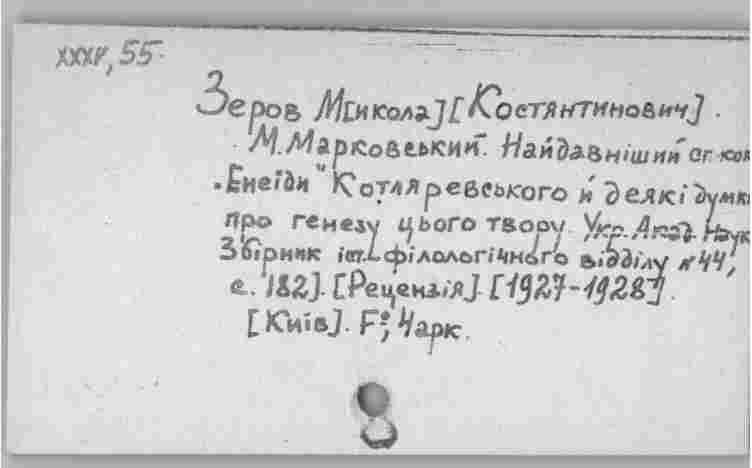 XXXV, 55.
Зеров М[икола] [Костянтинович].
М. Марковський. Найдавніший
„Енеїди" Котляревського й деякі думк
про генезу цього твору. Укр. Акад. Наук
Збірник іст.-філологічного відділу №44,
с. 182]. [Рецензія]. [1927-1928].
[Київ]. F°, 4 арк.